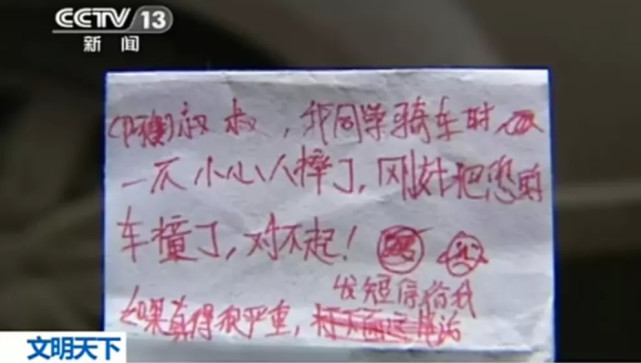 CCTV 13
新闻
(阿姨)叔叔，我同学骑车时
一不小心人摔了，刚好把您的
车撞了，对不起！
发短信给我
如果真得很严重，
文明天下